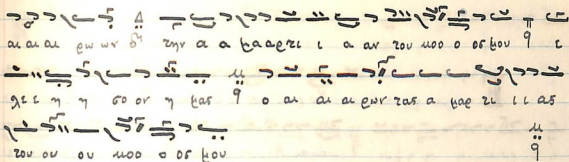 αι αι αι ρων την α α μααρτι ι α αν του κοο ο οσμου ι
λε ε η η σο ον η μας ο αι αι αι ρων τας α μαρ τι ι ι ας
του ου ου κοο ο οσ μου